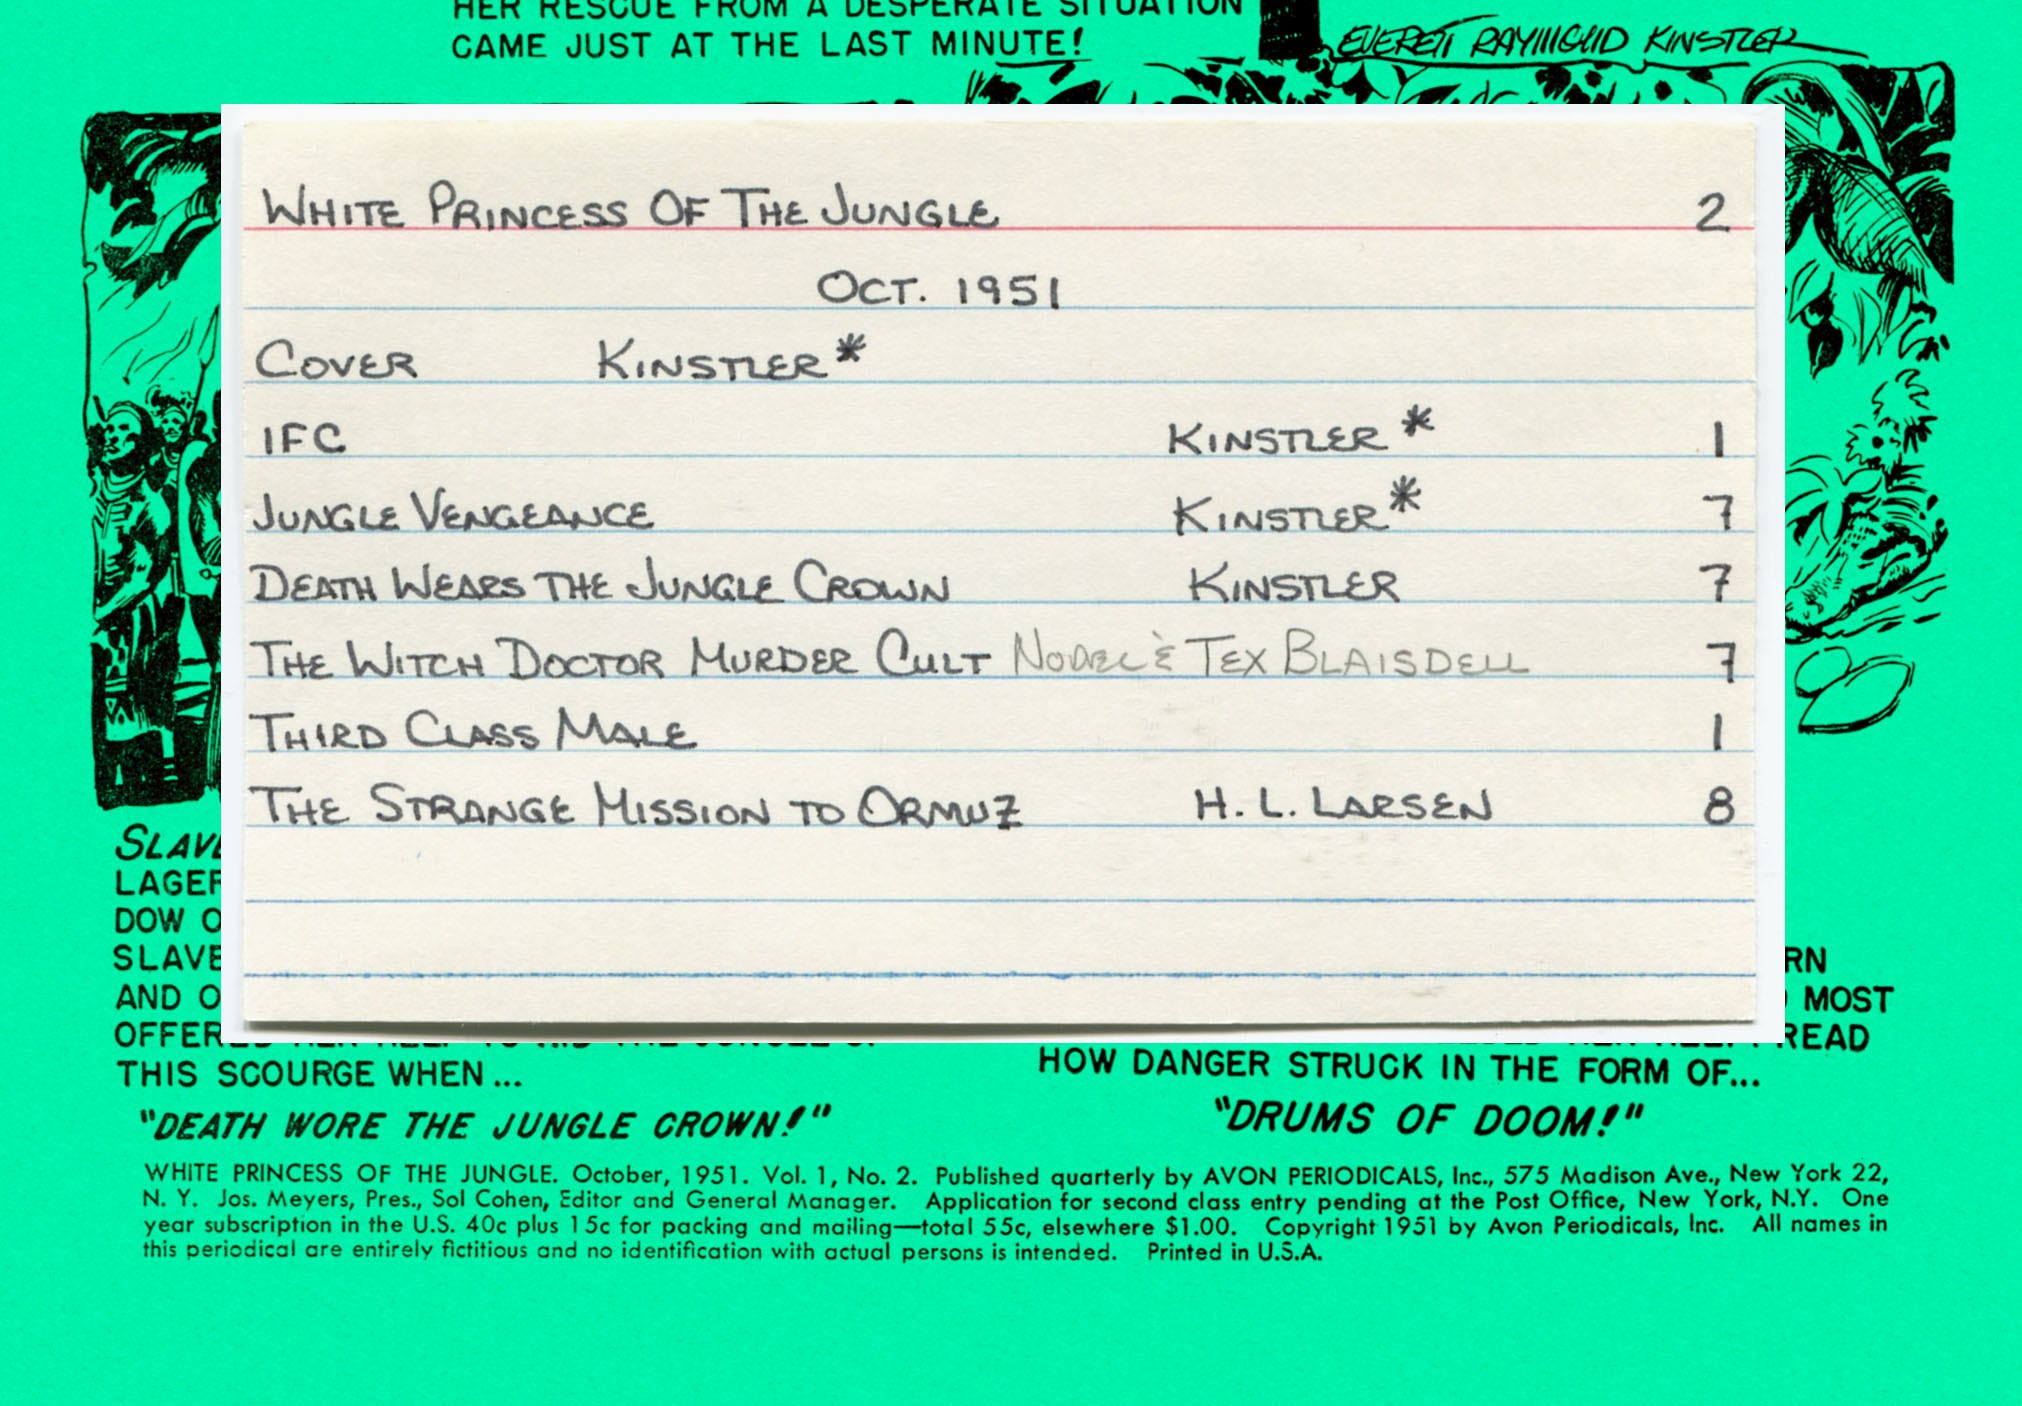 HER RESCUE FROM A DESPERATE SITUATION
CAME JUST AT THE LAST MINUTE!
EVERETT RAYMOND KINSTLER
WHITE PRINCESS OF THE JUNGLE 2
OCT. 1951
COVER KINSTLER*
IFC KINSTLER* 1
JUNGLE VENGEANCE KINSTLER* 7
DEATH WEARS THE JUNGLE CROWN KINSTLER 7
THE WITCH DOCTOR MURDER CULT & TEX BLAISDELL 7
THIRD CLASS MALE 1
THE STRANGE MISSION TO ORMUZ H. L. LARSEN 8
DOW
AND
THIS SCOURGE WHEN...
"DEATH WORE THE JUNGLE CROWN!"
MOST
READ
HOW DANGER STRUCK IN THE FORM OF...
"DRUMS OF DOOM!"
WHITE PRINCESS OF THE JUNGLE. October, 1951. Vol. 1, No. 2. Published quarterly by AVON PERIODICALS, Inc., 575 Madison Ave., New York 22,
N. Y. Jos. Meyers, Pres., Sol Cohen, Editor and General Manager. Application for second class entry pending at the Post Office, New York, N.Y. One
year subscription in the U.S. 40c plus 15c for packing and mailing—total 55c, elsewhere $1.00. Copyright 1951 by Avon Periodicals, Inc. All names in
this periodical are entirely fictitious and no identification with actual persons is intended. Printed in U.S.A.